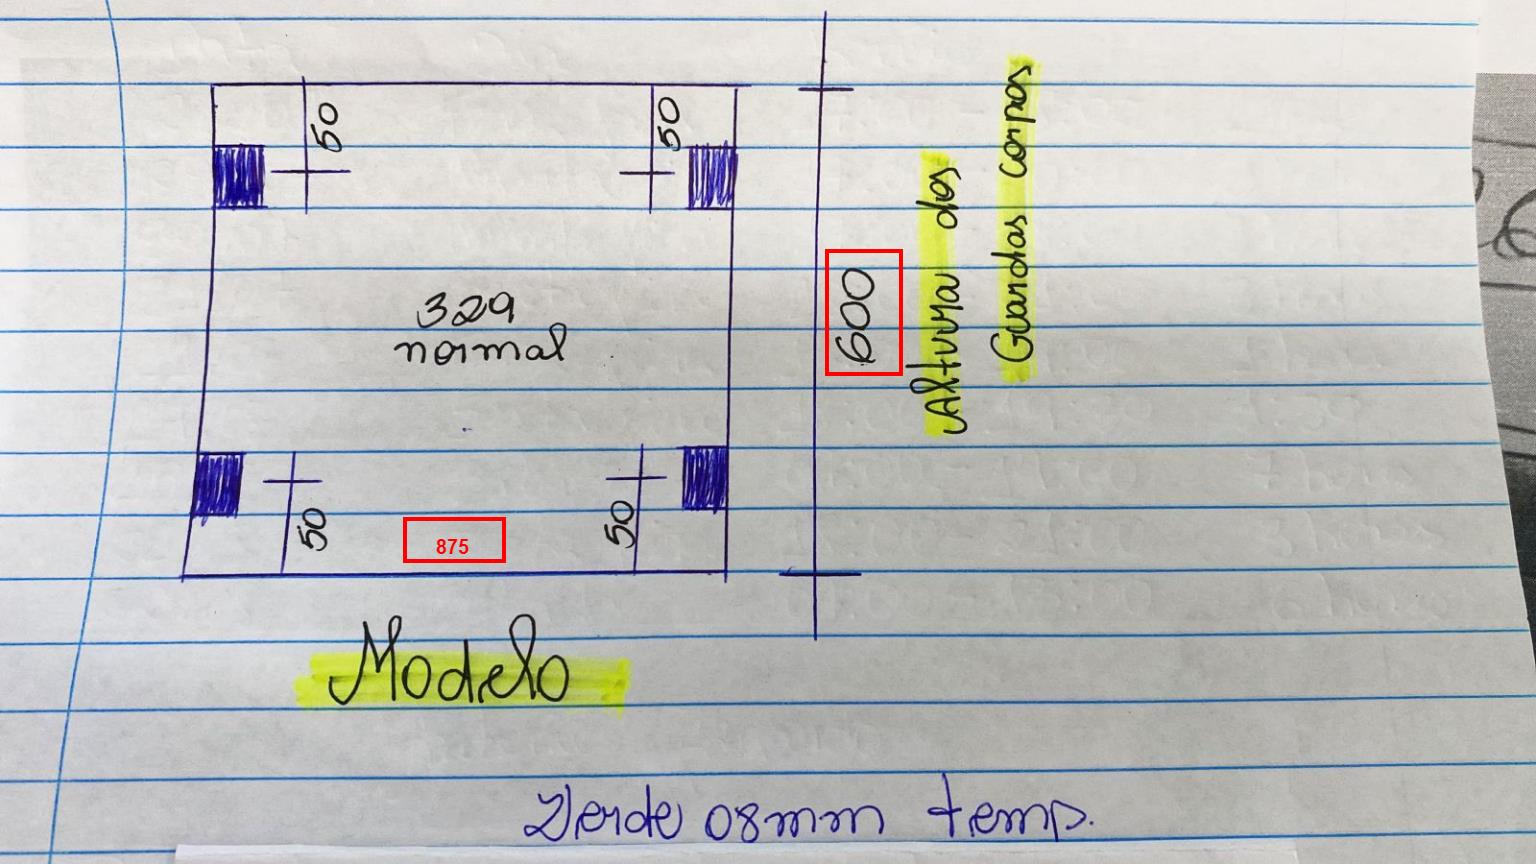 50
50
329
normal
50
50
875
600
Altura dos
Guardas corpos
Modelo
Verde 08mm temp.